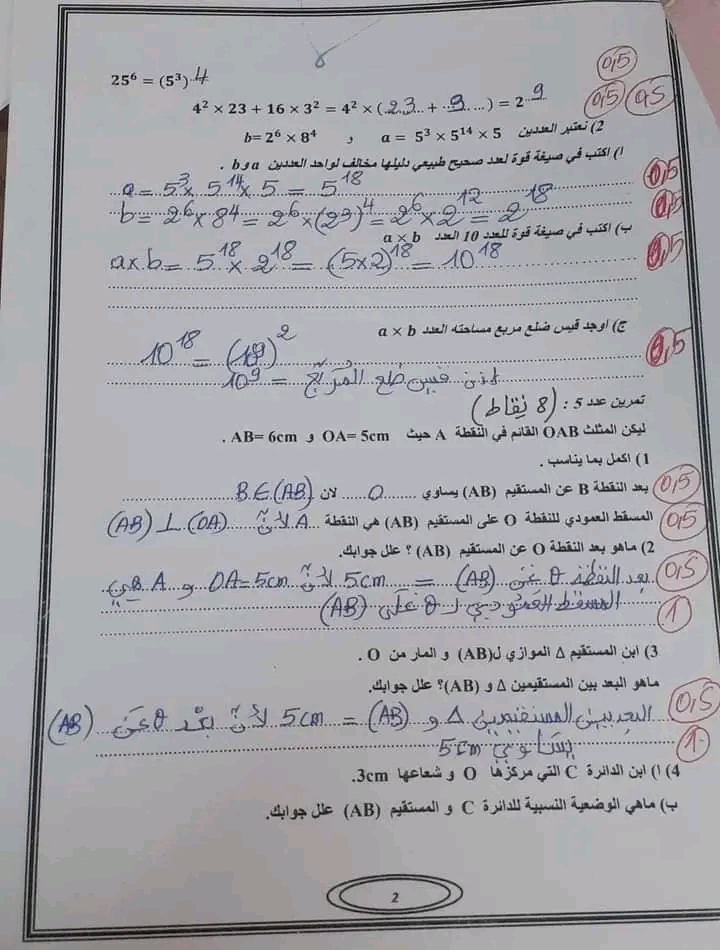 25⁶ = (5³) 4
0,5
4² × 23 + 16 × 3² = 4² × (.23. + .9. ) = 2 9
0,5 0,5
2) نعتبر العددين a = 5³ × 5¹⁴ × 5 و b= 2⁶ × 8⁴
ا) اكتب في صيغة قوة لعدد صحيح طبيعي دليلها مخالف لواحد العددين a و b .
a = 5³ × 5¹⁴ × 5 = 5¹⁸ 0,5
b = 2⁶ × 8⁴ = 2⁶ × (2³)⁴ = 2⁶ × 2¹² = 2¹⁸ 0,5
ب) اكتب في صيغة قوة للعدد 10 العدد a × b
a × b = 5¹⁸ × 2¹⁸ = (5×2)¹⁸ = 10¹⁸ 0,5
ج) اوجد قيس ضلع مربع مساحته العدد a × b
10¹⁸ = (10⁹)² 0,5
إذن قيس ضلع المربّع = 10⁹
تمرين عدد 5 : (8 نقاط)
ليكن المثلث OAB القائم في النقطة A حيث OA= 5cm و AB= 6cm .
1) اكمل بما يناسب .
بعد النقطة B عن المستقيم (AB) يساوي ....0.... لان B∈(AB) 0,5
المسقط العمودي للنقطة O على المستقيم (AB) هي النقطة A لأنّ (OA) ⊥ (AB) 0,5
2) ماهو بعد النقطة O عن المستقيم (AB) ؟ علل جوابك.
بعد النقطة O عن (AB) = 5cm لأنّ OA=5cm و A هي 0,5
المسقط العمودي لـ O على (AB) 1
3) ابن المستقيم Δ الموازي ل(AB) و المار من O .
ماهو البعد بين المستقيمين Δ و (AB)؟ علل جوابك.
البعد بين المستقيمين Δ و (AB) = 5cm لأنّ بعد O عن (AB) 0,5
يساوي 5cm 1
4) ا) ابن الدائرة C التي مركزها O و شعاعها 3cm.
ب) ماهي الوضعية النسبية للدائرة C و المستقيم (AB) علل جوابك.
2